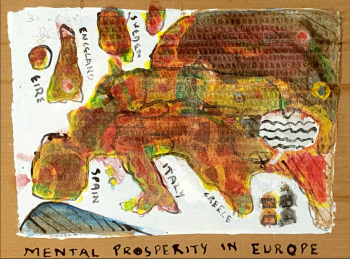 SWEDEN
ENGELAND
EIRE
SPAIN
ITALY
GREECE
MENTAL PROSPERITY IN EUROPE